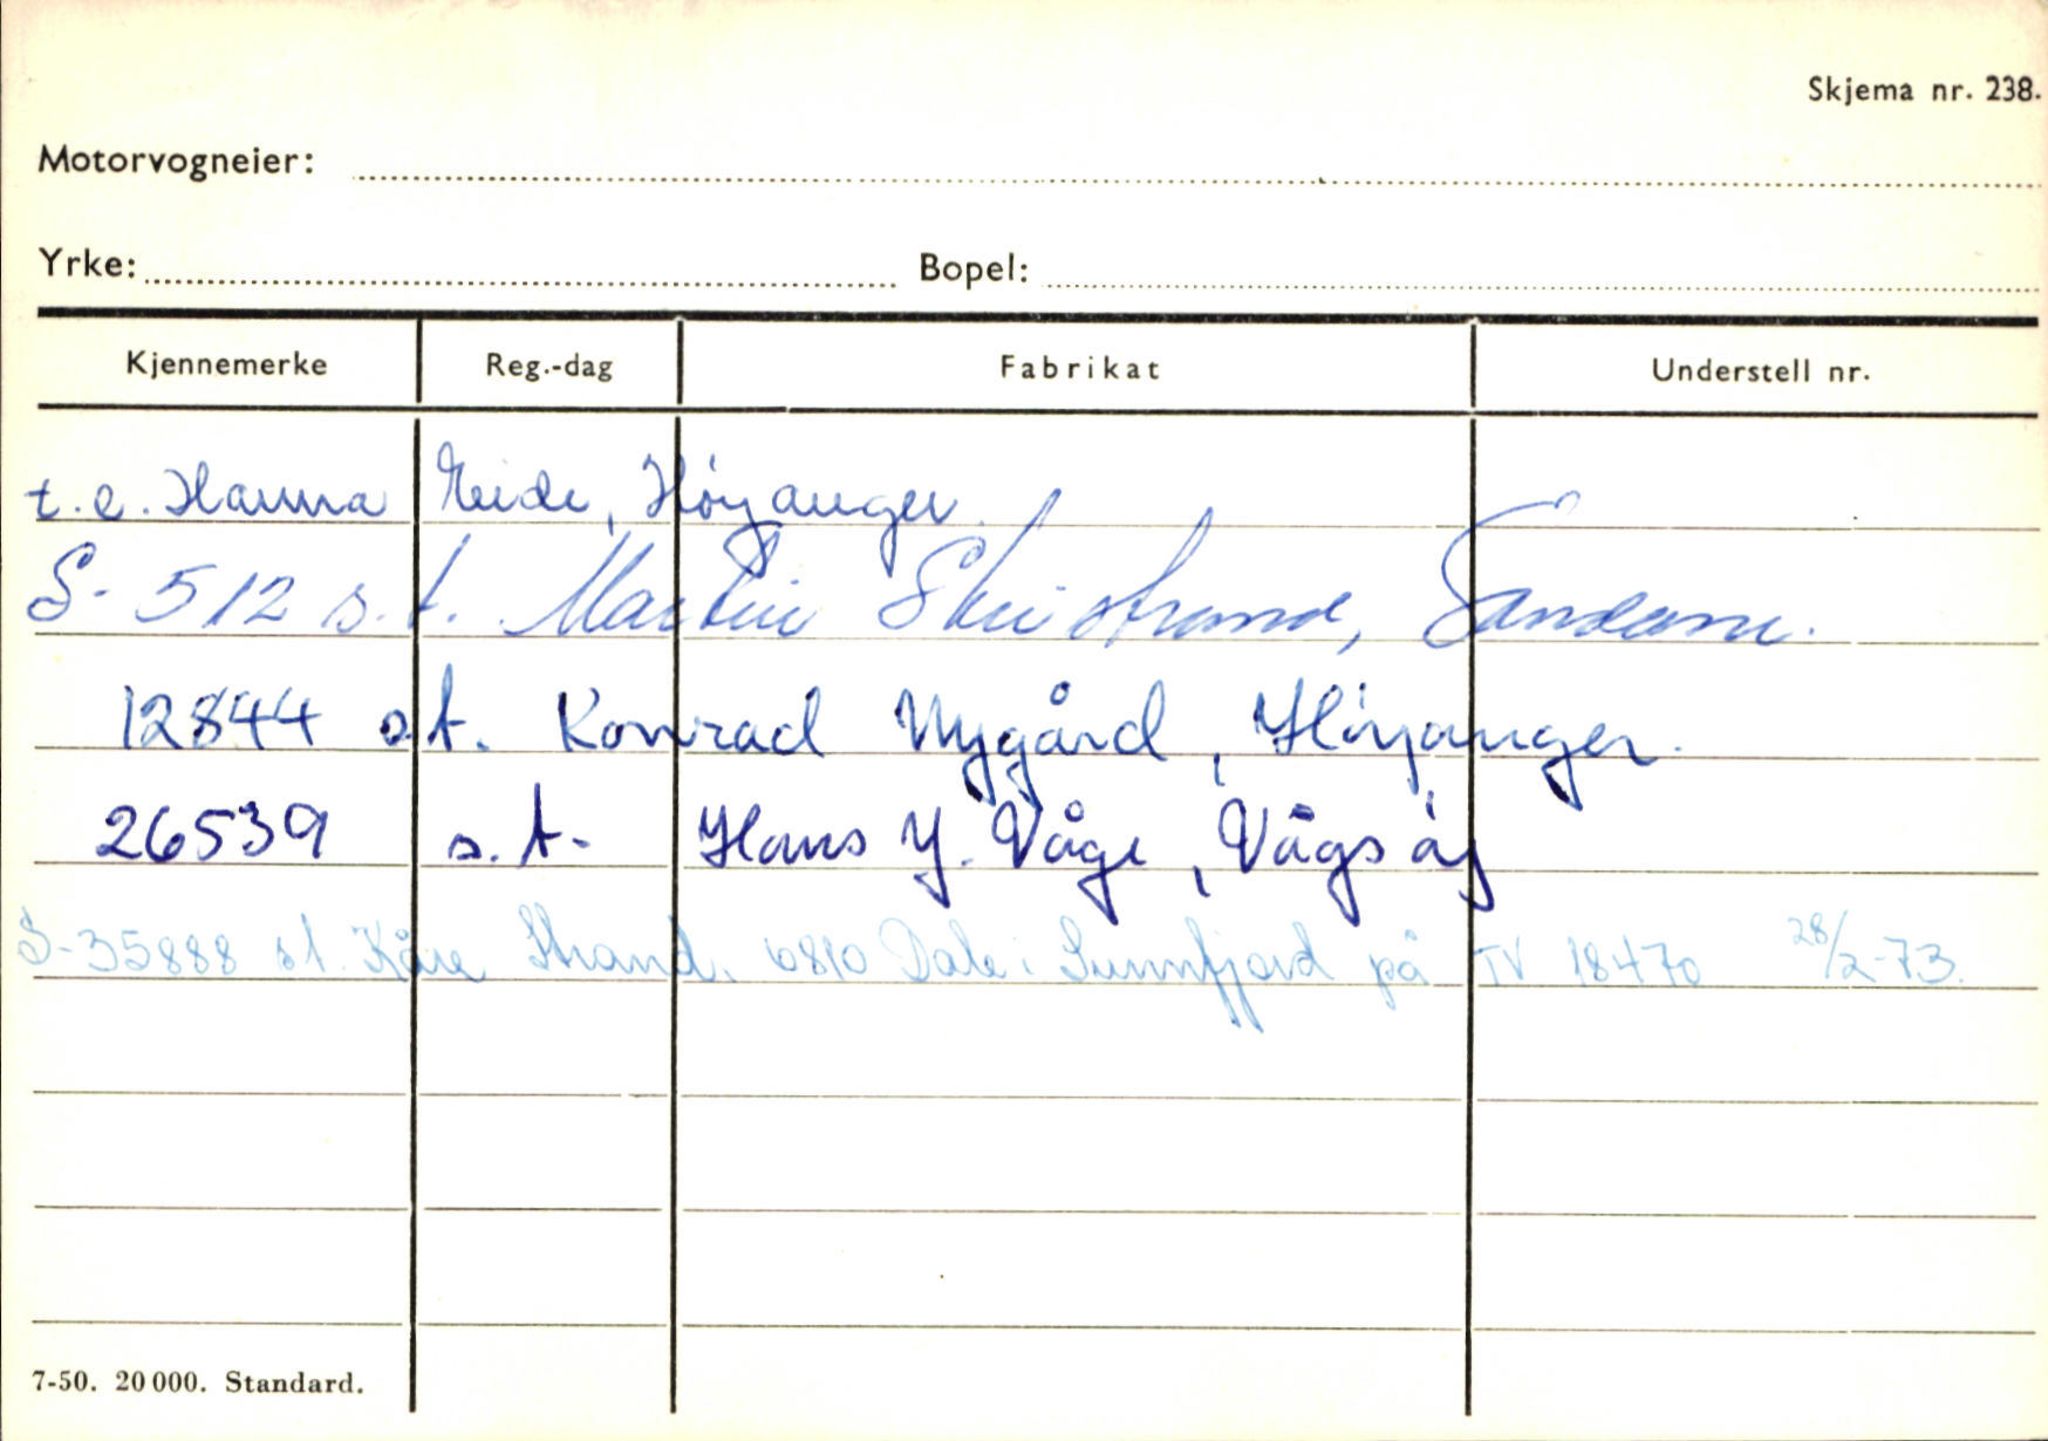 Skjema nr. 238.
Motorvogneier:
Yrke: Bopel:
Kjennemerke Reg.-dag Fabrikat Understell nr.
t.e. Hanna Eide, Höyanger.
S-512 s.t. Martin Skeistrand, Sandane.
12844 s.t. Konrad Nygård, Höyanger.
26539 s.t. Hans Y. Våge, Vågsöy
S-35888 s.t. Kåre Strand. 6810 Dale i Sunnfjord på TV 18470 28/2-73.
7-50. 20 000. Standard.